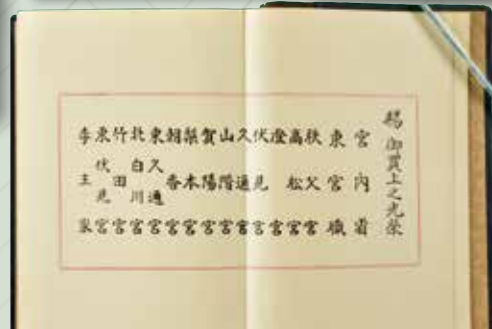 賜 御買上之光榮
宮内省
東宮職
秩父宮
高松宮
澄宮
伏見宮
久邇宮
山階宮
賀陽宮
梨本宮
朝香宮
東久邇宮
北白川宮
竹田宮
東伏見宮
李王家